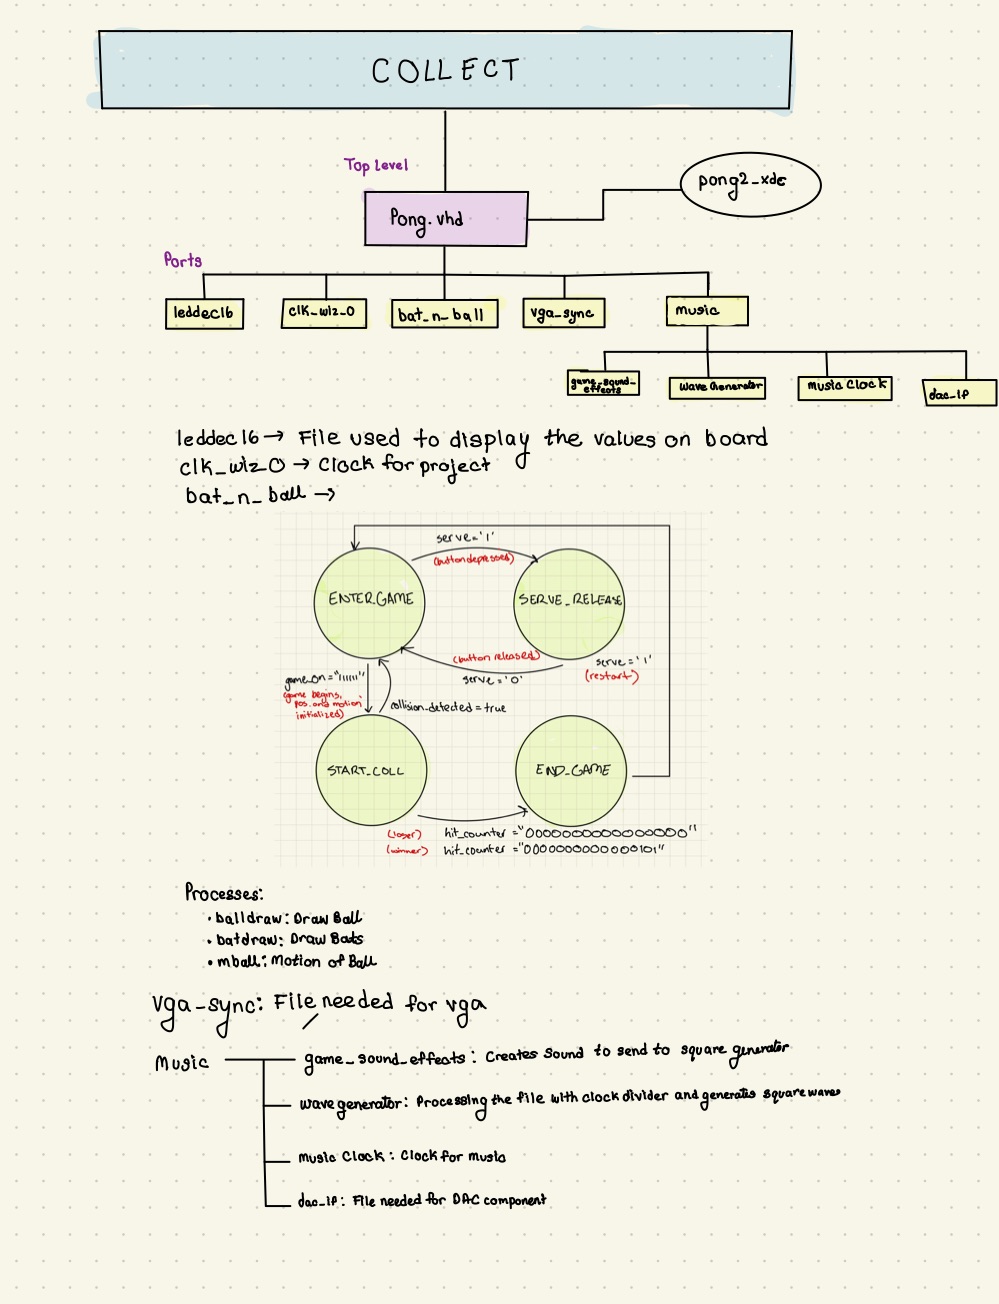 COLLECT
Top Level
Pong.vhd
pong2_xdc
Ports
leddec16
clk_wiz_0
bat_n_ball
vga_sync
music
game_sound_
effects
wave Generator
Music Clock
dac_IP
leddec16 → File used to display the values on board
clk_wiz_0 → Clock for project
bat_n_ball →
serve='1'
(button depressed)
ENTER_GAME
SERVE_RELEASE
(button released)
serve='0'
serve='1'
(restart)
game_on="11111"
(game begins,
pos. and motion
initialized)
collision_detected = true
START_COLL
END_GAME
(loser) hit_counter ="0000000000000000"
(winner) hit_counter ="0000000000000101"
Processes:
• balldraw: Draw Ball
• batdraw: Draw Bats
• mball: Motion of Ball
vga_sync: File needed for vga
Music
game_sound_effects: Creates Sound to send to square generator
wave generator: Processing the file with clock divider and generates square waves
Music Clock: Clock for music
dac_IP: File needed for DAC component